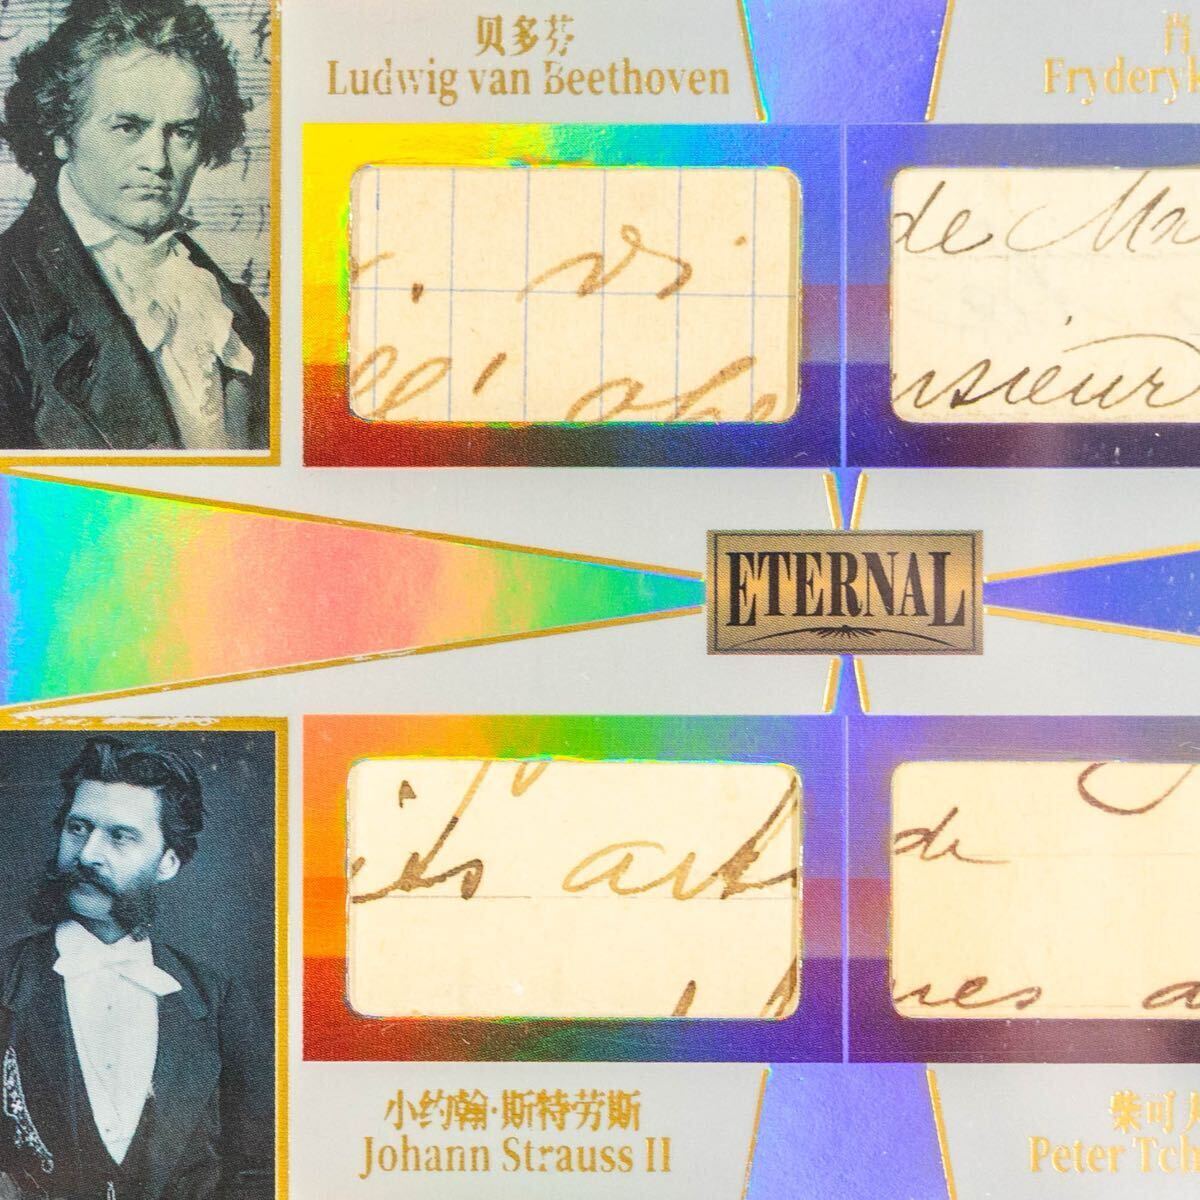 贝多芬
Ludwig van Beethoven
Fryderyk
vi
de Ma
nsieur
ETERNAL
its art
de
ues a
小约翰·斯特劳斯
Johann Strauss II
柴可
Peter Tch